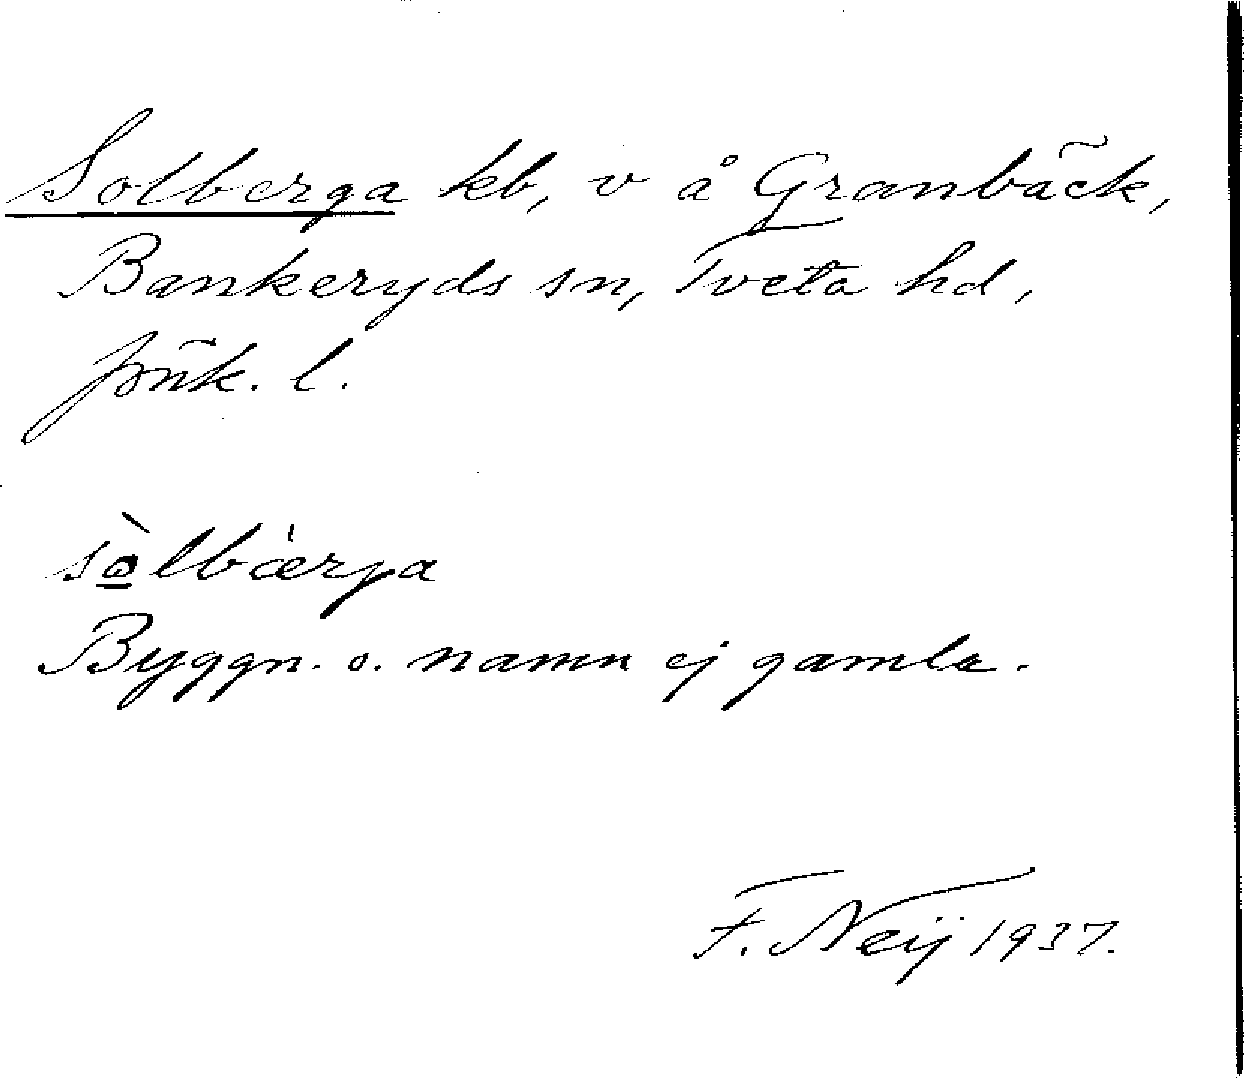 Solberga kb, v å Granbäck,
Bankeryds sn, Tveta hd,
Jönk. l.
sòlbærja
Byggn. o. namn ej gamla.
F. Neij 1937.